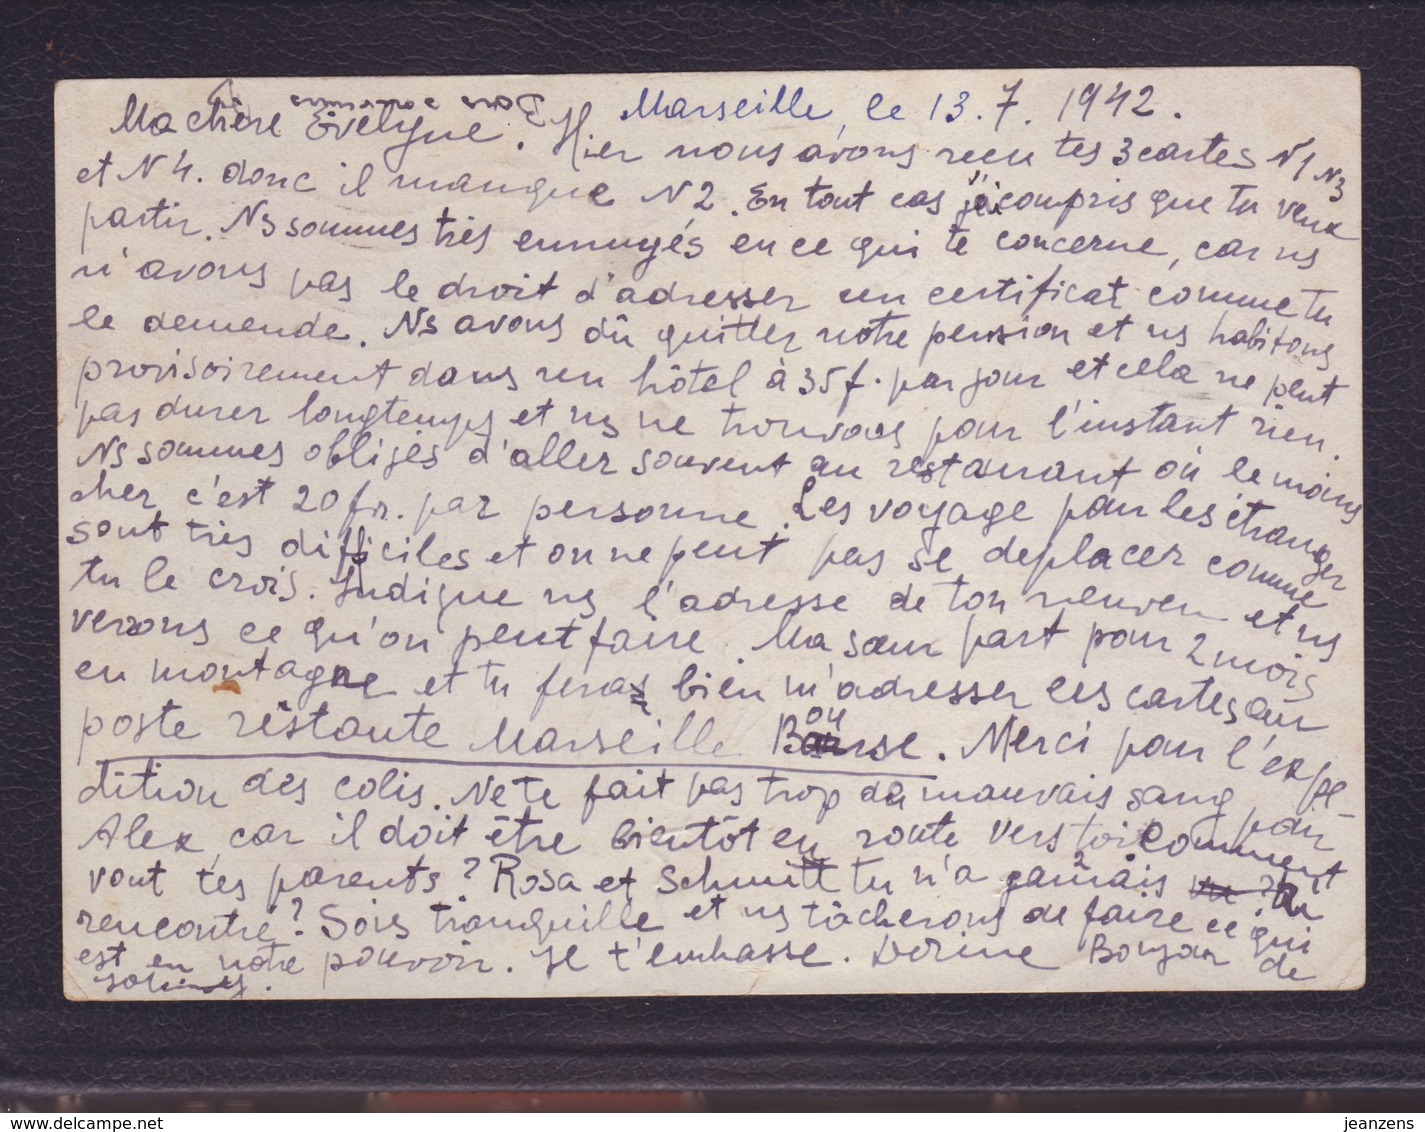 Marseille, le 13.7.1942.
Ma chère Evelyne. Hier nous avons reçu tes 3 cartes N1 N3
et N4. donc il manque N2. En tout cas j'ai compris que tu veux
partir. Ns sommes très ennuyés en ce qui te concerne, car ns
n'avons pas le droit d'adresser un certificat comme tu
le demende. Ns avons dû quitter notre pension et ns habitons
provisoirement dans un hôtel à 35 f. par jour et cela ne peut
pas durer longtemps et ns ne trouvons pour l'instant rien.
Ns sommes obligés d'aller souvent au restaurant où le moins
cher c'est 20 fr. par personne. Les voyage pour les étranger
sont très difficiles et on ne peut pas se deplacer comme
tu le crois. Indique ns l'adresse de ton et ns
verrons ce qu'on peut faire. Ma sœur part pour 2 mois
en montagne et tu feras bien m'adresser les cartes sur
poste restante Marseille Bourse. Merci pour l'expé-
dition des colis. Ne te fait pas trop du mauvais sang pour
Alex, car il doit être bientôt en route vers toi. Comment
vont tes parents? Rosa et Schmitt tu n'a jamais
rencontré? Sois tranquille et ns tâcherons de faire ce qui
est en notre pouvoir. Je t'embrasse. Dorine Bonjour de
www.delcampe.net
jeanzens